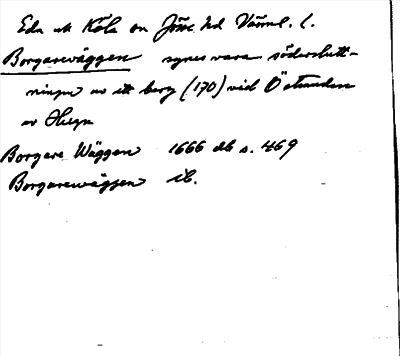 Eda sn Köla Jösse hd Värml. l.
Borgareväggen synes vara södersluttningen
av ett berg (170) vid Östmuden
av Hugn
Borgare Wäggen 1666 db s. 469
Borgarewäggen ib.